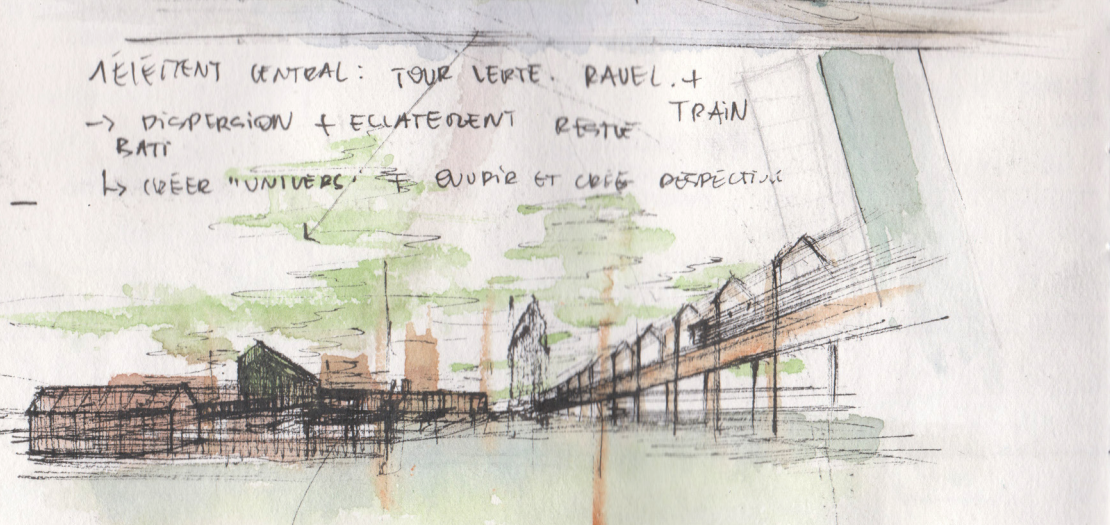 1 ÉLÉMENT CENTRAL : TOUR VERTE. RAVEL. + TRAIN
-> DISPERSION + ECLATEMENT
BATI
↳ CRÉER "UNIVERS" + OUVRIR ET CRÉE PERSPECTIVE